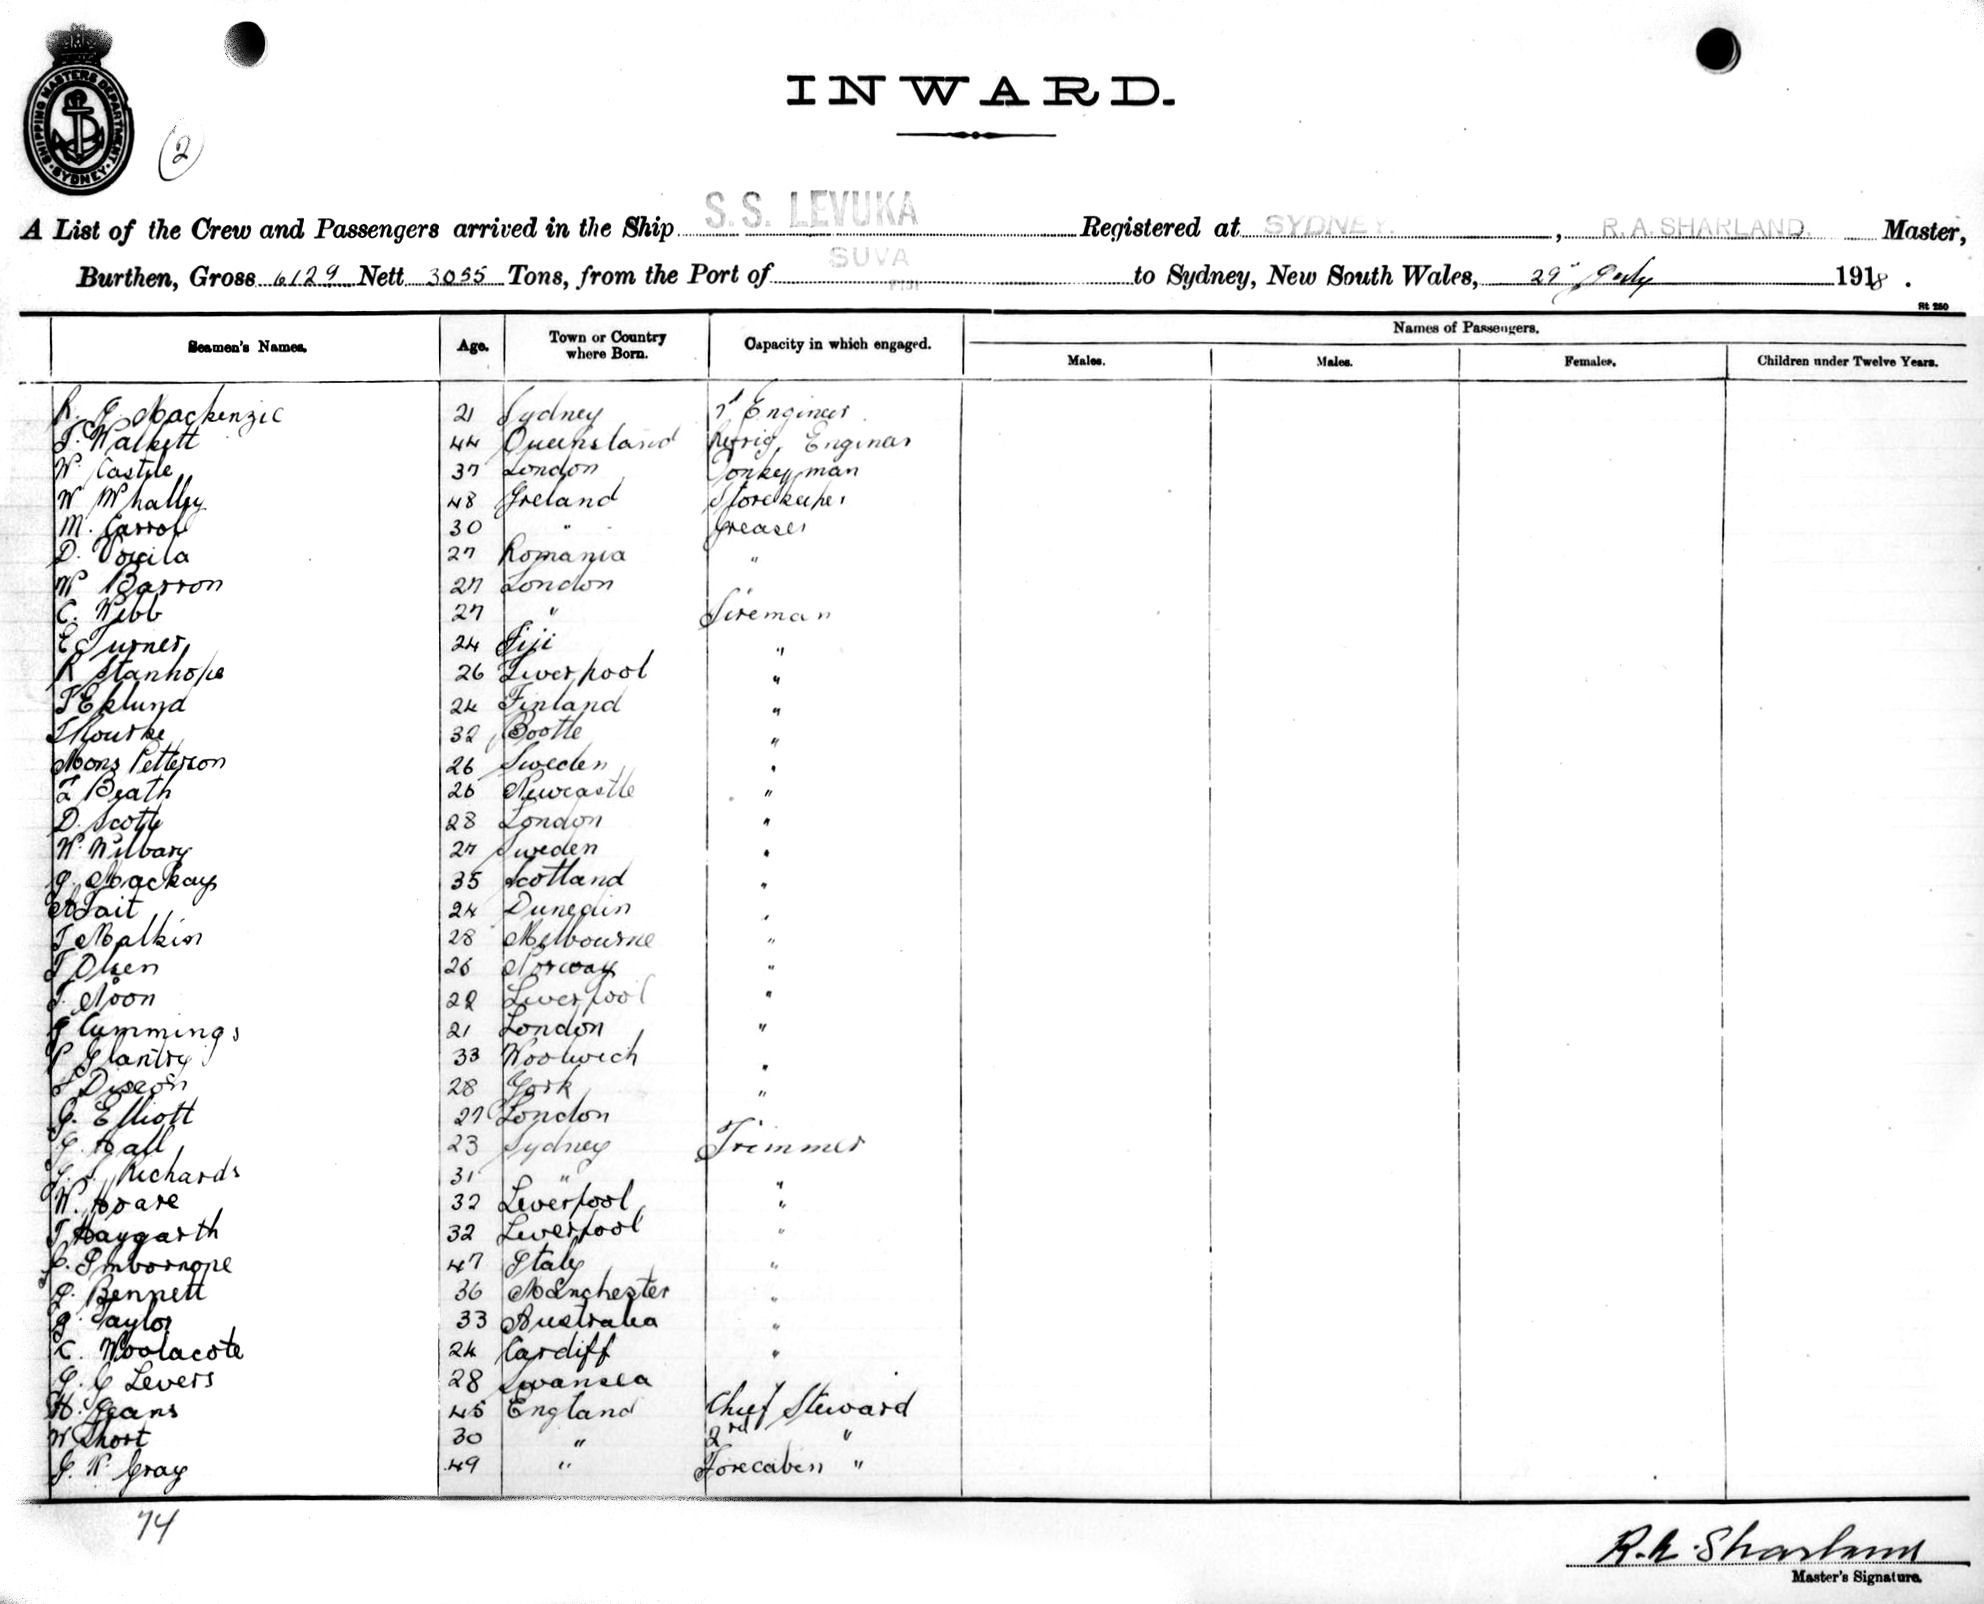 SHIPPING MASTERS DEPARTMENT
SYDNEY
(2)
INWARD.
A List of the Crew and Passengers arrived in the Ship S.S. LEVUKA Registered at SYDNEY. , R. A. SHARLAND. Master,
Burthen, Gross 6129 Nett 3055 Tons, from the Port of SUVA FIJI to Sydney, New South Wales, 29" July 1918.
Rt 250
Seamen's Names. Age. Town or Country where Born. Capacity in which engaged. Names of Passengers.
Males. Males. Females. Children under Twelve Years.
Mackenzie 21 Sydney Engineer
T. Walkett 44 Queensland Refrig. Engineer
W. Castle 37 London Donkeyman
W Whalley 48 Ireland Storekeeper
M. Carrol 30 " Greaser
D. Voicila 27 Romania "
W Barron 27 London
C. Webb 27 " Fireman
E Turner 24 Fiji "
R Stanhope 26 Liverpool "
T Eklund 24 Finland "
T Rourke 32 Bootle "
Mons Petterson 26 Sweden "
Beath 26 Newcastle "
D. Scott 28 London "
W. Wilbary 27 Sweden "
J. Mackay 35 Scotland "
A Tait 24 Dunedin "
T Malkin 28 Melbourne "
T Olsen 26 Norway "
T. Noon 22 Liverpool "
J Cummings 21 London "
P Glantry 33 Woolwich "
Dixon 28 York "
G. Elliott 27 London
G. Hall 23 Sydney Trimmer
G. S. Richards 31 " "
W. Hoare 32 Liverpool "
T Haygarth 32 Liverpool "
C. Imbornone 47 Italy "
J. Bennett 36 Manchester "
J. Taylor 33 Australia "
C. Woolacote 24 Cardiff "
G. C Levers 28 Swansea
H. Jeans 45 England Chief Steward
W Short 30 " 2rd "
G. W. Gray 49 " Forecabin "
74
R. A. Sharland
Master's Signature.